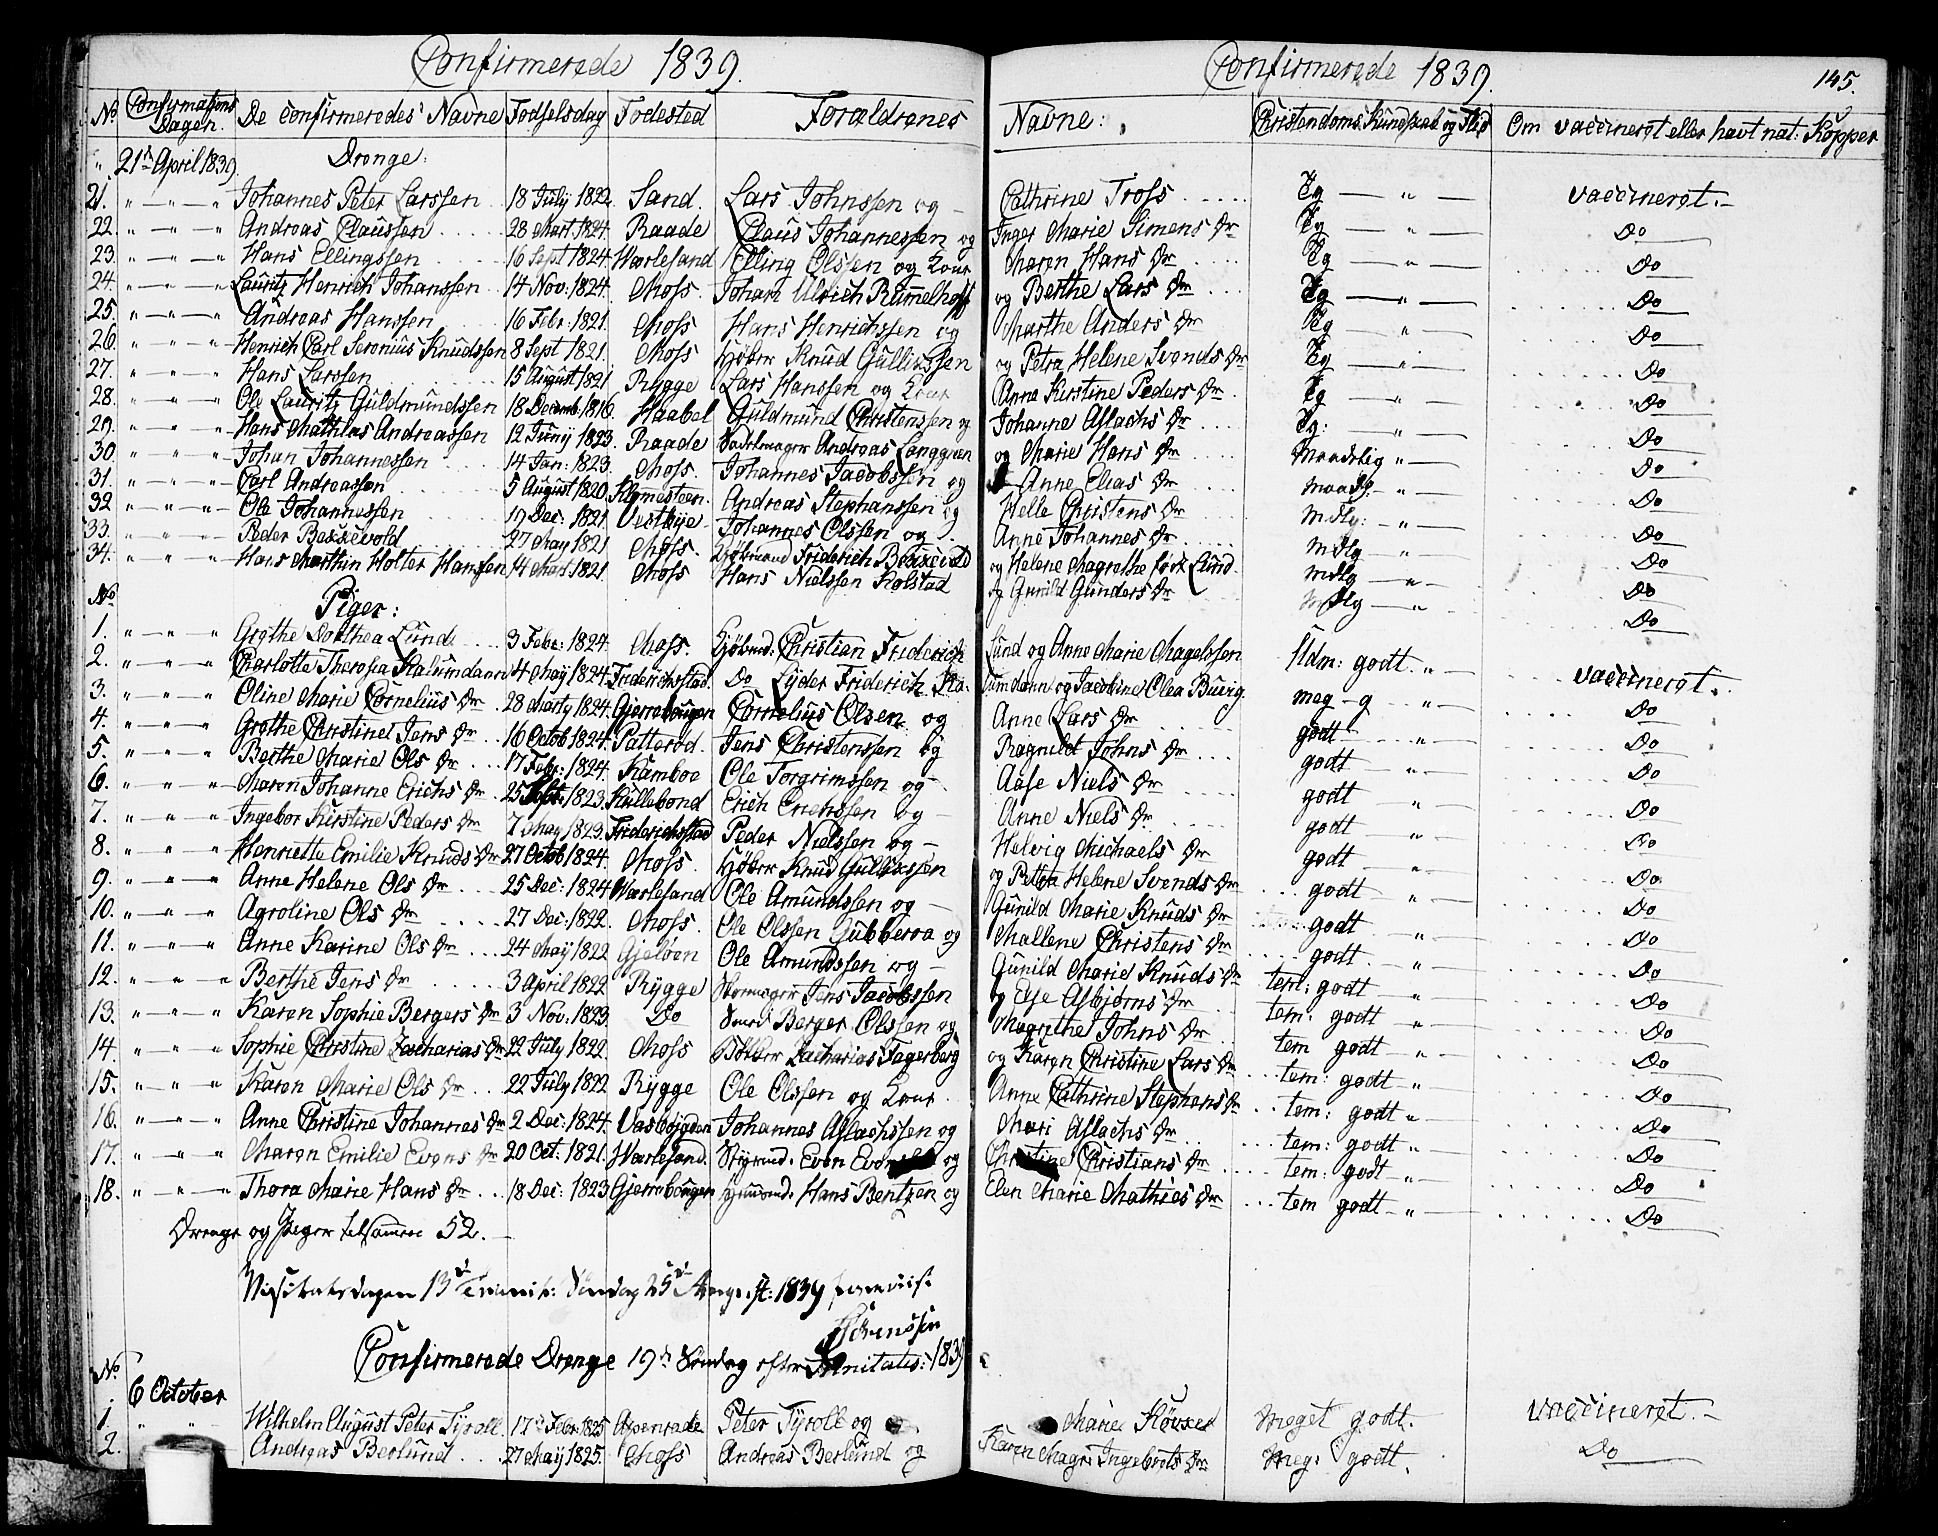 Confirmerede 1839.
Confirmerede 1839. 145.
No Confirmations Dagen. De confirmeredes Navne Fødselsdag Fødested Forældrenes Navne: Christendoms Kundskab og Flid Om vaccineret eller havt nat: Kopper
" 21de April 1839. Drenge:
21. " — " — " Johannes Peter Larssen 18 July 1822. Sand. Lars Johnssen og – Cathrine Tross Tg — " — vaccineret. –
22. " — " — " Andreas Claussen 28 Mart 1824. Raade Claus Johannessen og Inger Marie Simens Dr Tg — " — Do
23. " — " — " Hans Ellingssen 16 Sept 1824. Værlesand Elling Olssen og Kone Maren Hans Dr Tg — " — Do
24. " — " — " Lauritz Henrich Johanssen 14 Nov: 1824. Moss. Johan Ulrich Rummelhoff og Berthe Lars Dr Tg — " — Do
25. " — " — " Andreas Hanssen 16 Febr: 1821. Moss Hans Henrichssen og Marthe Anders Dr Tg — " — Do
26. " — " — " Henrich Carl Severinus Knudssen 8 Sept 1821. Moss Knud Gullixssen og Petra Helene Svends Dr Tg — " — Do
27. " — " — " Hans Larssen 15 August 1821 Rygge Lars Hanssen og Kone Anne Kirstine Peders Dr Tg — " — Do
28. " — " — " Ole Lauritz Guldmundssen 18 Decemb. 1816. Haabel Guldmund Christenssen og Johanne Aslachs Dr Tg: — " — Do
29. " — " — " Hans Mathias Andreassen 12 Juny 1823. Raade Sadelmager Andreas Langgren og Marie Hans Dr Maadelig " — Do
30 " — " — " Johan Johannessen 14 Jan: 1823. Moss. Johannes Jacobssen og Anne Elias Dr Maadlg: — " — Do
31. " — " — " Carl Andreassen 5 August 1820. Klomesteen. Andreas Stephanssen og Helle Christens Dr Mdlg: — " — Do
32 " — " — " Ole Johannessen 19 Dec: 1821. Vestbÿe Johannes Olssen og Anne Johannes Dr Mdlg — " — Do
33. " — " — " Peder Bexxevold 27 May 1821 Moss. Kjøbmand Friderich Bexxevold og Helene Magrethe født Lund. Mdlg — " — Do
34. " — " — " Hans Marthin Holter Hanssen 14 Mart 1821. Moss Hans Nielssen Rolstad og Gunild Gunders Dr Mdlg — " Do
No Piger:
1. " — " — " Grethe Dorthea Lund 3 Febr: 1824. Moss. Kjøbmd: Christian Friderich Lund og Anne Marie Magelssen Udm: godt. " —
2. " — " — " Charlotte Theresia Kalumdann 4 May 1824 Friderichstad. Do Lyder Friderich Kalumdann og Jacobine Olea Buvig. meg – g " — vaccineret.
3. " — " — " Oline Marie Cornelius Dr 28 Marty 1824. Gjerrebougen Cornelius Olsen og Anne Lars Dr godt " — Do
4. " — " — " Grethe Christine Jens Dr 16 Octob 1824. Patterød. Jens Christenssen og Ragnild Johns Dr godt " — Do
5. " — " — " Berthe Marie Ols Dr 17 Febr: 1824. Kamboe Ole Torgrimssen og – Aase Niels Dr godt " — Do
6. " — " — " Maren Johanne Erichs Dr 25 Sept: 1823. Kullebond Erich Erichssen og – Anne Niels Dr godt " — Do
7. " — " — " Ingebor Kirstine Peders Dr 7 May 1823. Friderichstad Peder Nielssen og – Helvig Michaels Dr godt " — Do
8. " — " — " Henriette Emilie Knuds Dr 27 Octob 1824. Moss. Knud Gullixssen og Petra Helene Svends Dr godt " — Do
9. " — " — " Anne Helene Ols Dr 25 Dec: 1824 Værlesand Ole Amundssen og – Gunild Marie Knuds Dr godt " — Do
10. " — " — " Agroline Ols Dr 27 Dec: 1822. Moss. Ole Olssen Gubberoa og Mallene Christens Dr godt. " — Do
11. " — " — " Anne Karine Ols Dr 24 May 1822 Gjeløen Ole Amundssen og – Gunild Marie Knuds Dr tem: godt " — Do
12. " — " — " Berthe Jens Dr 3 April 1822 Rygge Skomager Jens Jacobssen og Else Asbjørns Dr tem: godt " — Do
13. " — " — " Karen Sophie Bergers Dr 3 Nov. 1823. Do Berger Olssen og Magrethe Johns Dr tem godt — " — Do
14. " — " — " Sophie Christine Zacharias Dr 22 July 1822. Moss Zacharias Fagerberg og Karen Christine Lars Dr tem: godt " — Do
15. " — " — " Karen Marie Ols Dr 22 July 1822 Rygge Ole Olssen og Kone Anne Cathrine Stephens Dr tem: godt " Do
16. " — " — " Anne Christine Johannes Dr 2 Dec: 1824. Vasbøigden Johannes Aslachssen og Mari Aslachs Dr tem: godt " Do
17. " — " — " Maren Emilie Evens Dr 20 Oct. 1821. Værlesand. Even og Christine Christians Dr tem: godt " — Do
18. " — " — " Thora Marie Hans Dr 18 Dec: 1823 Gjerrebougen Hans Bentzen og Elen Marie Mathies Dr tem godt " — Do
Drenge og Piger tilsammen 52.
Visitatsdagen 13de Trinit: Søndag 25de August: 1839 foreviist
Sørenssen
No Confirmerede Drenge 19de Søndag efter Trinitatis: 1839
6 October
1. " " Wilhelm August Peter Tyroll 17de Febr 1825 Apenrade Peter Tyroll og Marie Köuxer Meget godt. vaccineret. –
2. Andreas Berlund 27 May 1825. Moss Andreas Berlund og Karen Magr: Ingebrets Dr Meg: godt. Do